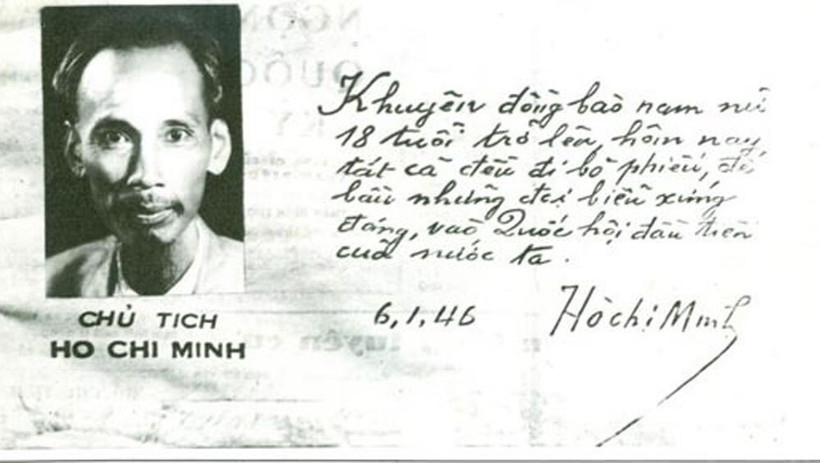 CHỦ TỊCH
HO CHI MINH
Khuyên đồng bào nam nữ
18 tuổi trở lên, hôm nay,
tất cả đều đi bỏ phiếu, để
bầu những đại biểu xứng
đáng, vào Quốc hội đầu tiên
của nước ta.
6,1,46
Hồ chí Minh